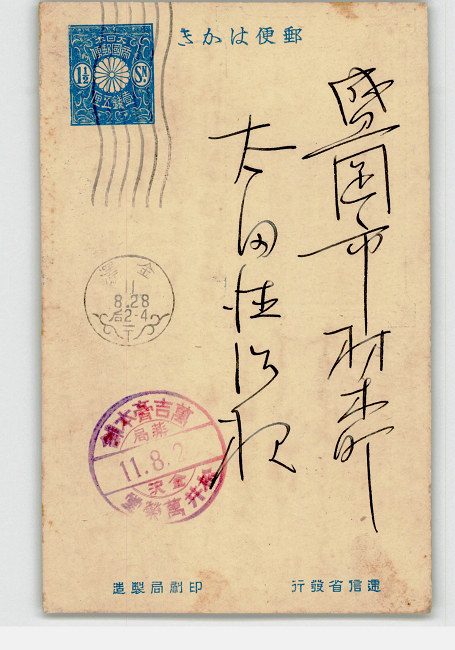 郵便はかき
大日本
帝國郵便
1½ SN.
壹錢五厘
盛岡市材木町
太田
金澤
11
8.28
后2-4
萬吉膏本舗
薬局
11.8.2
金沢
井萬
印刷局製造
遞信省發行